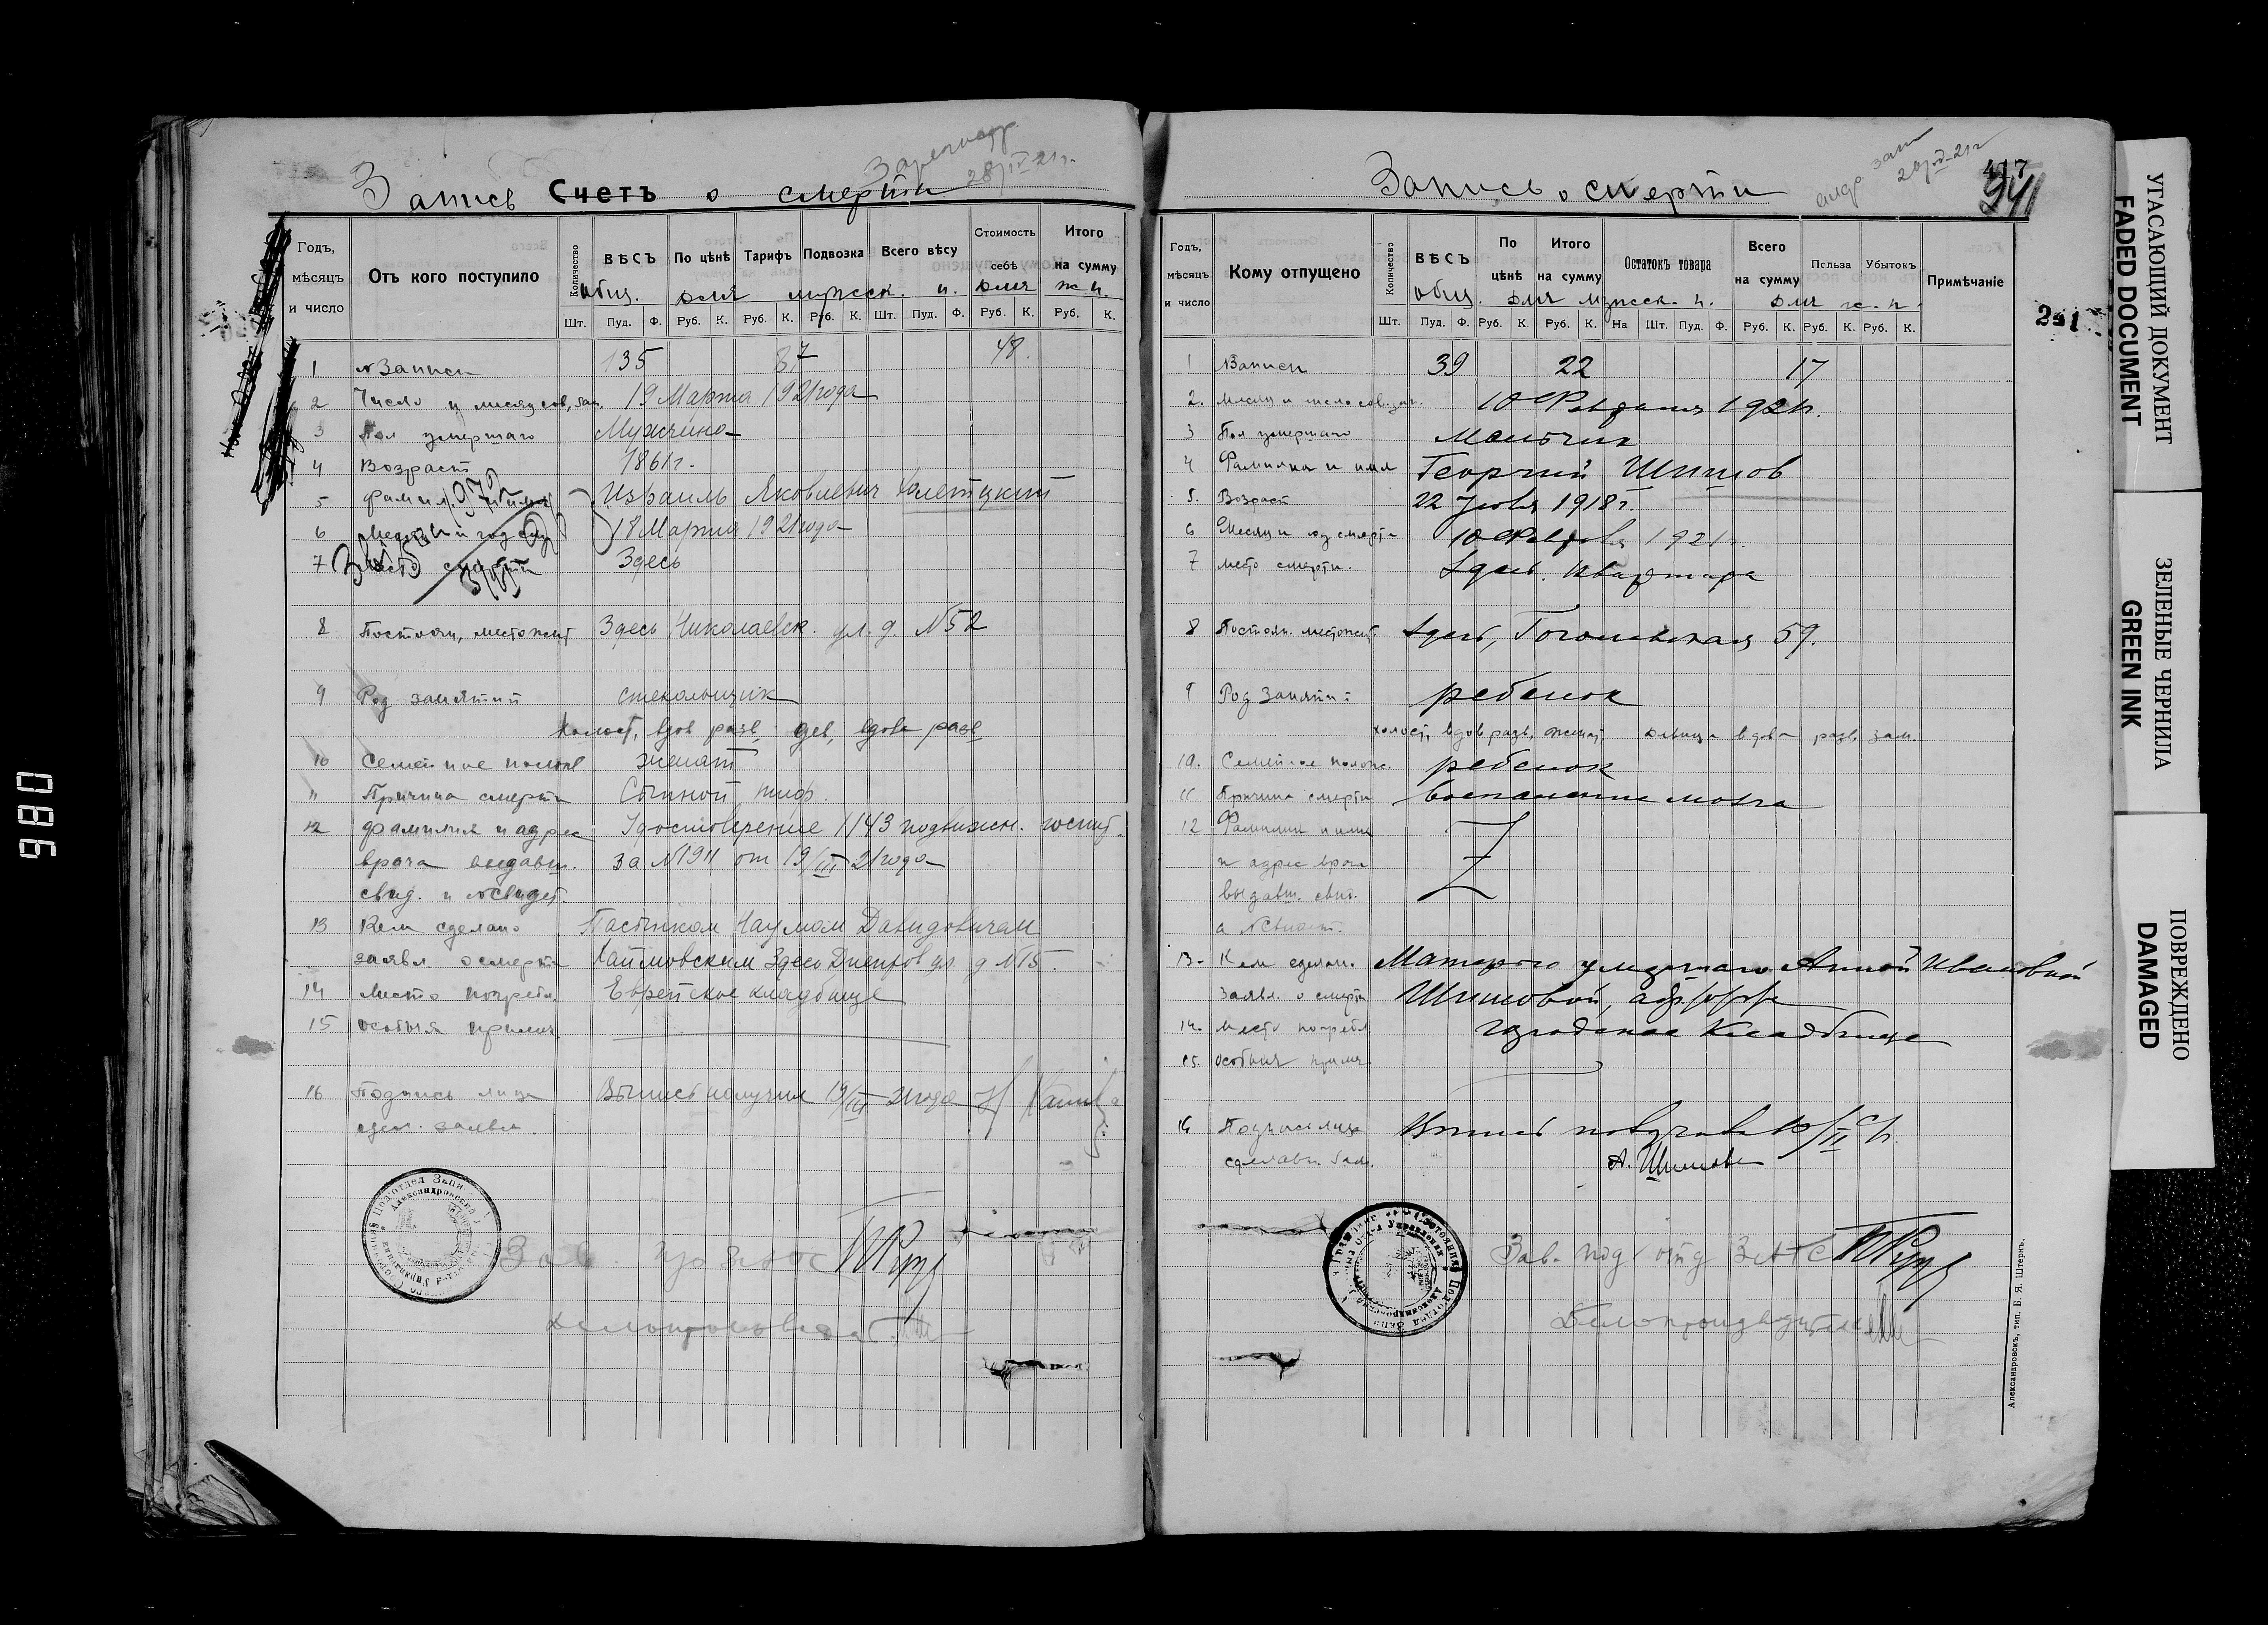 Запись Счетъ о смерти
28/IV 21г.
Годъ, мѣсяцъ и число
Отъ кого поступило
Количество
ВѢСЪ
По цѣнѣ
Тарифъ
Подвозка
Всего вѣсу
Стоимость себѣ
Итого на сумму
общ. для мужск. п. для ж. п.
Шт. Пуд. Ф. Руб. К. Руб. К. Руб. К. Шт. Пуд. Ф. Руб. К. Руб. К.
1 № Записи 135 87 48.
2 Число и месяц сов, зап. 19 Марта 1921 года
3 Пол умершаго Мужчина
4 Возраст 1861 г.
5 Фамил. Израиль Яковлевич
6 18 Марта 1921 года
7 Здесь
8 Постоян, местожит Здесь Николаевск. ул. д. №52
9 Род занятий стекольщик
Холост, вдов разв, дев, вдова разв
10 Семейное полож женат
11 Причина смерти Сыпной тиф
12 фамилия и адрес Удостоверение 1143 подвижн. госпит.
врача выдавш. за №194 от 19/III 21 года
свид. и № свидет.
13 Кем сделано Наумом Давидовичем
заявл. о смерти Хаимовским Здесь Днепров ул. д №15.
14 Место погребен Еврейское кладбище
15 Особыя примеч
16 Подпись лица Выпись получил 19/III 21 года
сдел. заявл.
Зав.
Запись о смерти
417
341
Годъ, мѣсяцъ и число
Кому отпущено
Количество
ВѢСЪ
По цѣнѣ
Итого на сумму
Остатокъ товара
Всего на сумму
Польза
Убытокъ
Примѣчаніе
общ. для мужск. п. для ж. п.
Шт. Пуд. Ф. Руб. К. Руб. К. На Шт. Пуд. Ф. Руб. К. Руб. К. Руб. К.
1 № Записи 39 22 17
2. Месяц и число сов. зап. 10 Февраля 1921 г.
3 Пол умершаго Мальчик
4 Фамилия и имя Георгий Шишов
5. Возраст 22 Июля 1918 г.
6 Месяц и год смерти 10 Февраля 1921 г.
7 место смерти. Здесь. Квартира
8 Постоян. местожит. Здесь, Гоголевская 59.
9 Род Занятий ребенок
холост, вдов разв, женат, девица вдова разв. зам.
10. Семейное полож. ребенок
11 Причина смерти Воспаление мозга
12 Фамилия и имя
и адрес врача
выдавш. свид.
и № свидет.
13. Кем сделан. Матерью умершаго Анной Ивановной
Заявл. о смерти Шишовой,
14. Место погребен Городское Кладбище
15. Особыя примеч.
16 Подпись лица Выпись получила 10/II
сделавш. зая. А. Шишова
Зав. подотд ЗАГС
Делопроизводитель
Александровскъ, тип. Б. Я. Штернъ.
241
УГАСАЮЩИЙ ДОКУМЕНТ
FADED DOCUMENT
ЗЕЛЕНЫЕ ЧЕРНИЛА
GREEN INK
ПОВРЕЖДЕНО
DAMAGED
086